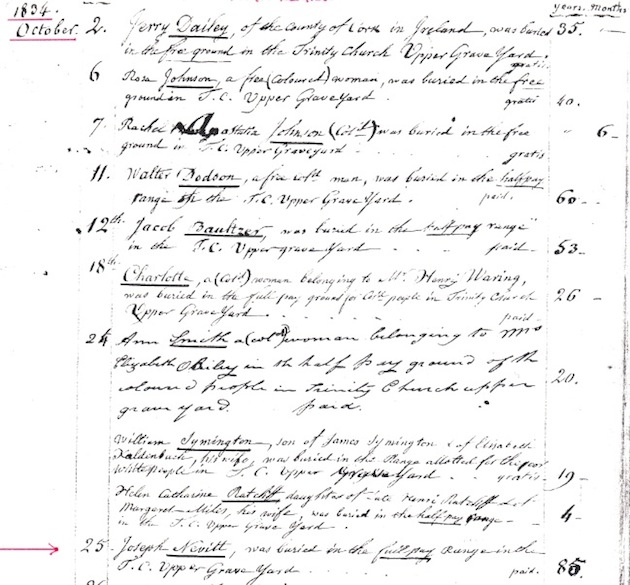 1834. Years. Months
October. 2. Jerry Dailey, of the County of Cork in Ireland, was buried 35. -
in the free ground in the Trinity Church Upper Grave Yard.
gratis
6 Rosa Johnson, a free (Coloured) woman, was buried in the free
ground in T.C. Upper Grave Yard. gratis 40.
7. Rachel Johnson (Cold) was buried in the free " 6 -
ground in T.C. Upper Graveyard - gratis
11. Walter Dodson, a free cold man, was buried in the half pay
range in the T.C. Upper Grave Yard. paid. 60 -
12th. Jacob Baultzer, was buried in the half pay range
in the T.C. Upper grave Yard paid - 53.
18th
Charlotte, a (Cold) woman belonging to Mr. Henry Waring,
was buried in the full pay ground for Cold people in Trinity Church 26 -
Upper Grave Yard paid -
24 Ann Smith a (cold) woman belonging to Mrs
Elizabeth in th half pay ground of th
coloured people in Trinity Church upper 20.
grave yard. paid.
William Symington, son of James Symington & of Elisabeth
Kaldenbach, his wife, was buried in the Range allotted for the poor
White people in T.C. Upper Grave Yard - gratis - 19 -
Helen Catharine Ratcliff daughter of Henri Ratcliff &
Margaret Miles, his wife, was buried in the half pay range - 4 -
in the T.C. Upper Grave Yard.
25. Joseph Nevitt, was buried in the full pay range in the
T.C. Upper Grave Yard paid. 85.